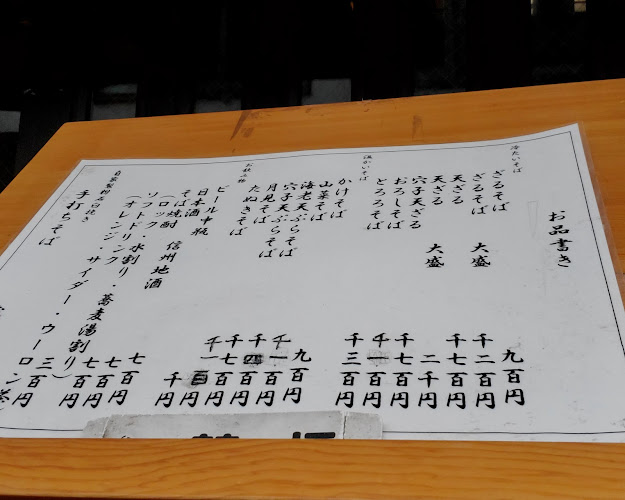 お品書き
冷たいそば
ざるそば 九百円
ざるそば 大盛 千二百円
天ざる 千七百円
天ざる 大盛 二千円
穴子天ざる 千七百円
おろしそば 千一百円
とろろそば 千三百円
温かいそば
かけそば 九百円
山菜そば 千一百円
海老天ぷらそば 千四百円
穴子天ぷらそば 千七百円
月見そば 千一百円
たぬきそば 千円
お飲み物
ビール中瓶 七百円
日本酒 信州地酒 七百円
そば焼酎 七百円
(ロック・水割り・蕎麦湯割り)
ソフトドリンク 三百円
(オレンジ・サイダー・ウーロン茶
自家製粉石臼挽き
手打ちそば